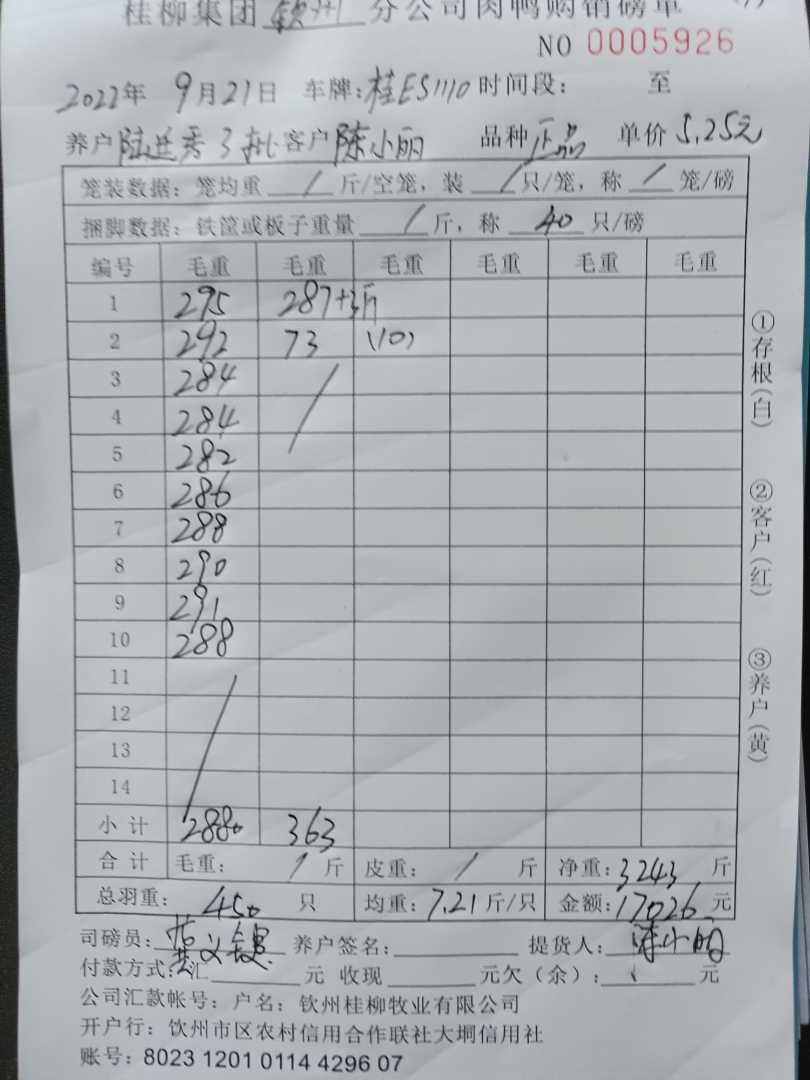 桂柳集团 钦州 分公司肉鸭购销磅单
NO 0005926
2022年 9月21日 车牌:桂ES1110 时间段: 至
养户 陆 秀 3批 客户 陈小丽 品种 正品 单价 5.25元
笼装数据: 笼均重 / 斤/空笼, 装 / 只/笼, 称 / 笼/磅
捆脚数据: 铁筐或板子重量 / 斤, 称 40 只/磅
编号 毛重 毛重 毛重 毛重 毛重 毛重
1 295 287+3斤
2 292 73 (10)
3 284 /
4 284
5 282
6 286
7 288
8 290
9 291
10 288
11 /
12
13
14
小计 2880 363
合计 毛重: / 斤 皮重: / 斤 净重: 3243 斤
总羽重: 450 只 均重: 7.21 斤/只 金额: 17026 元
司磅员: 养户签名: 提货人: 陈小丽
付款方式: 汇 元 收现 元欠(余): 元
公司汇款帐号: 户名: 钦州桂柳牧业有限公司
开户行: 钦州市区农村信用合作联社大垌信用社
账号: 8023 1201 0114 4296 07
①存根(白)
②客户(红)
③养户(黄)